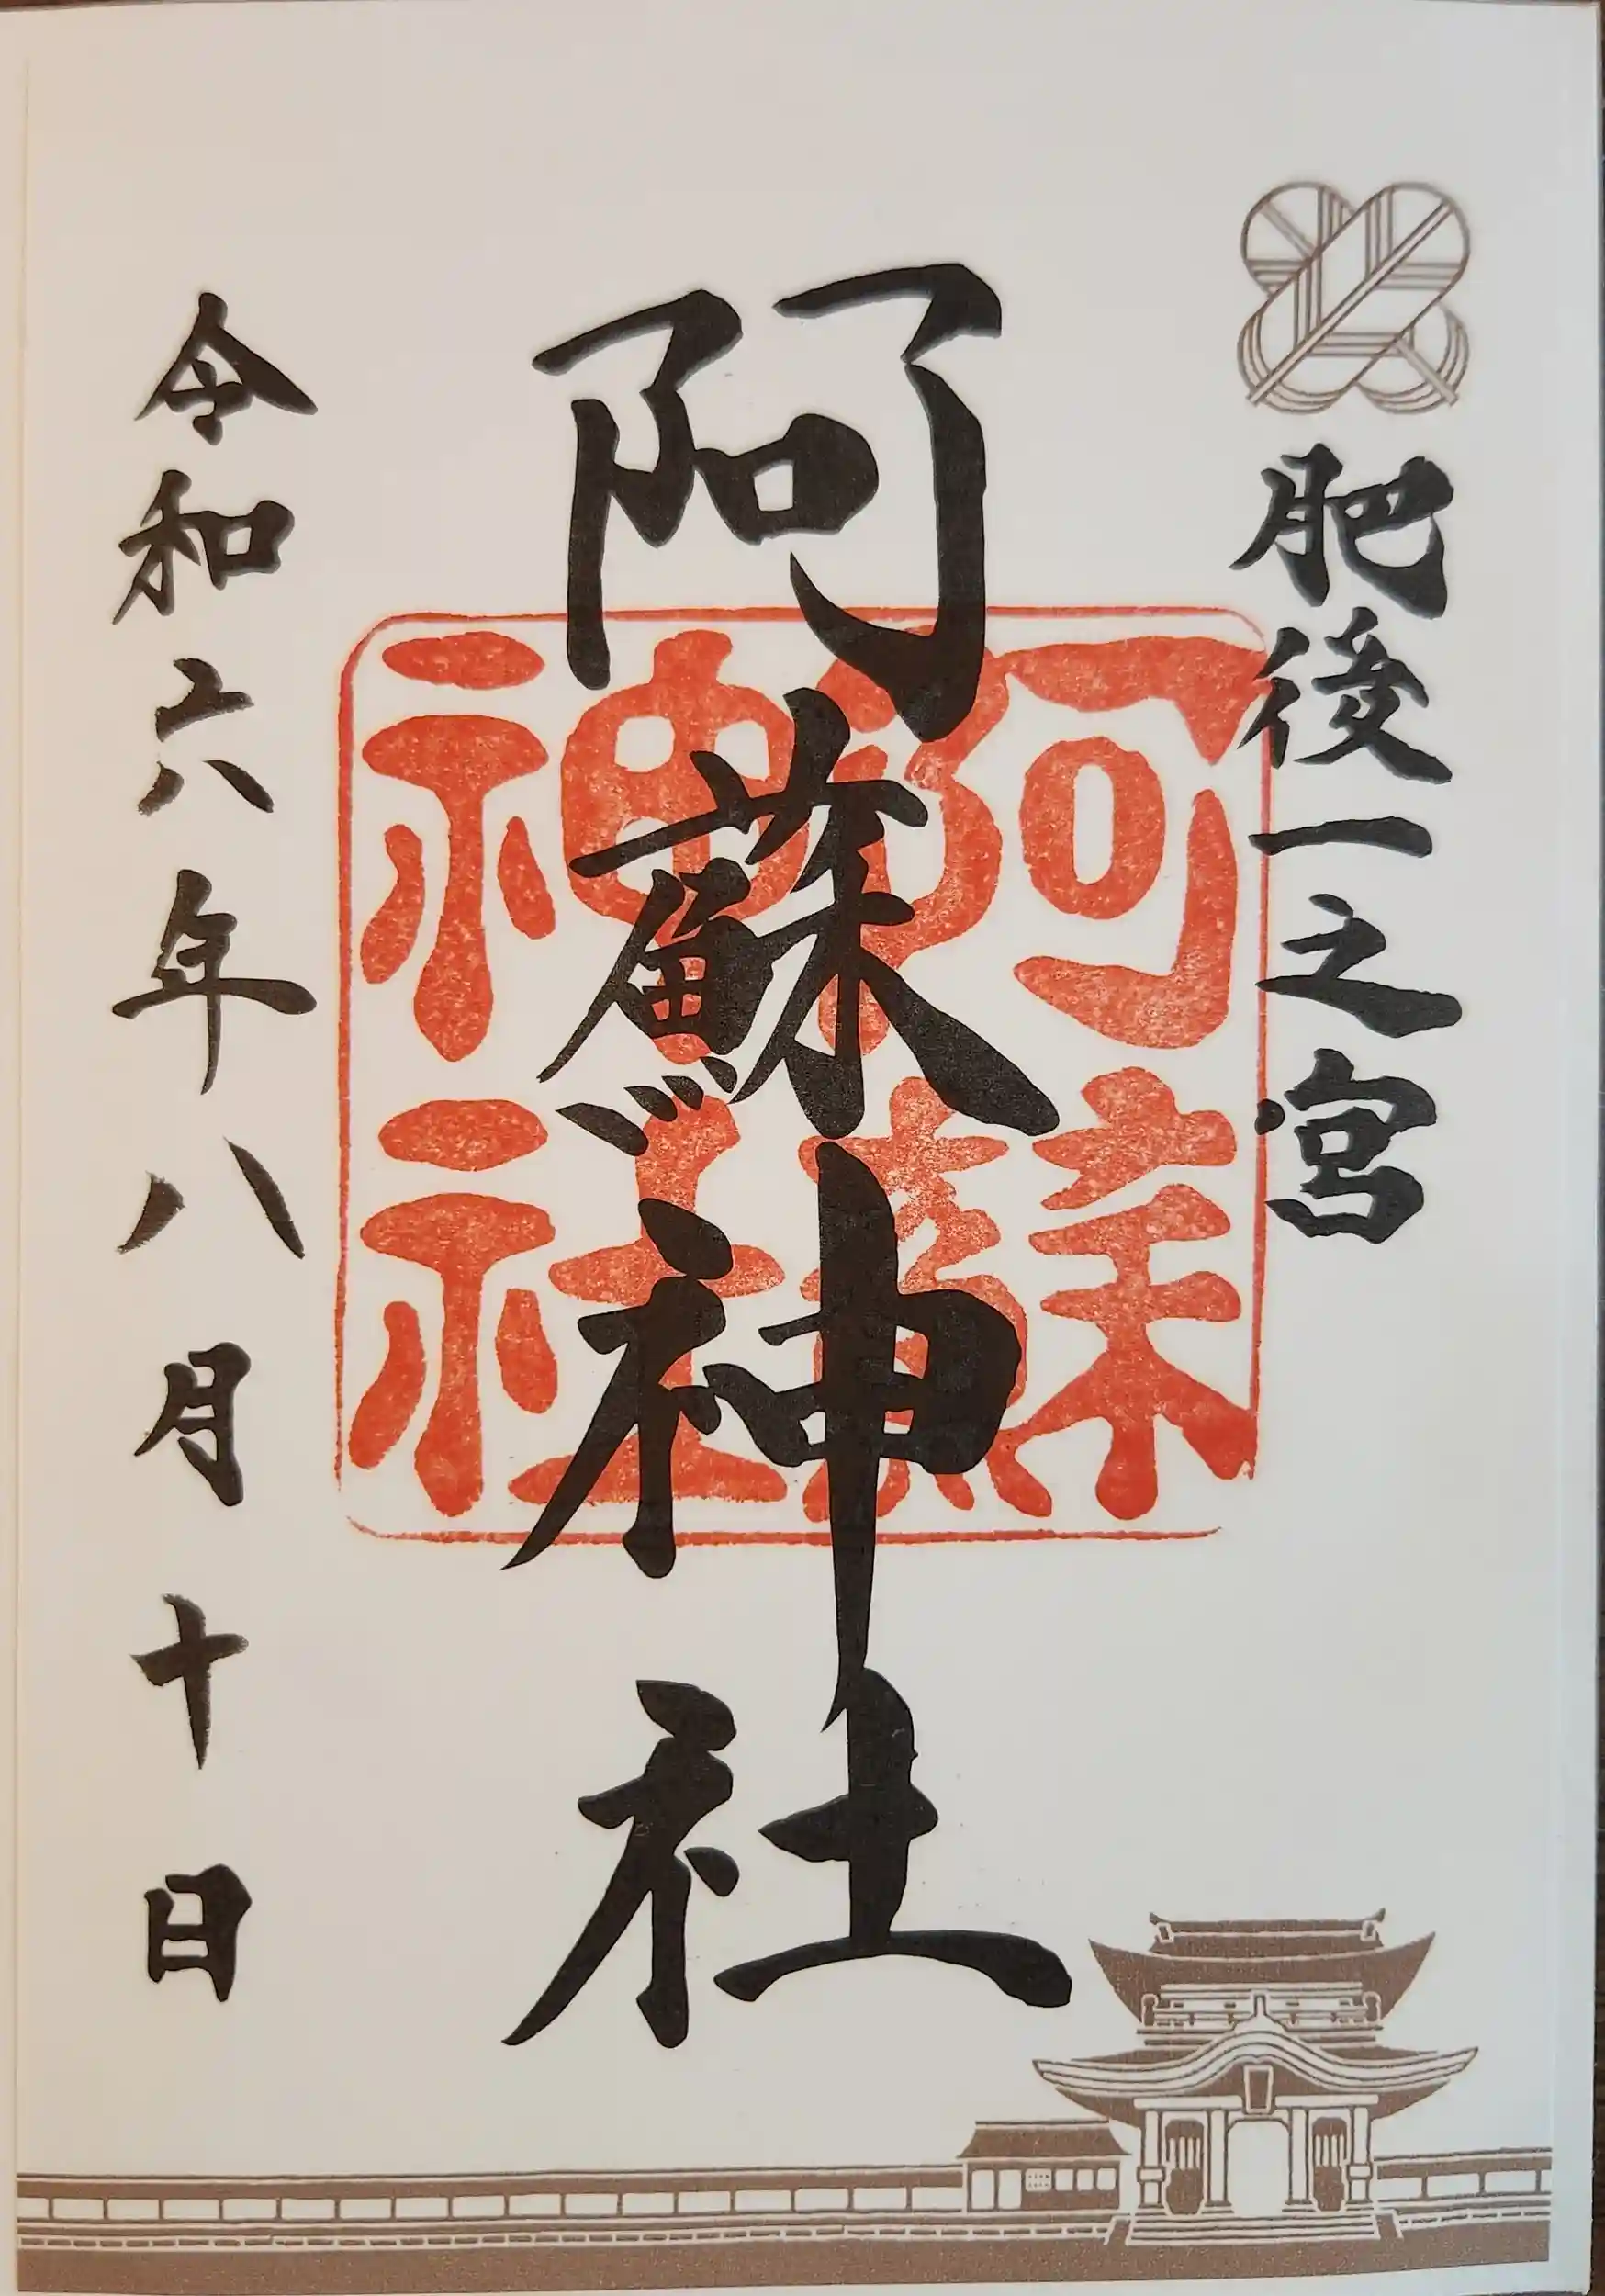 肥後一之宮
阿蘇神社
阿蘇神社
令和六年八月十日